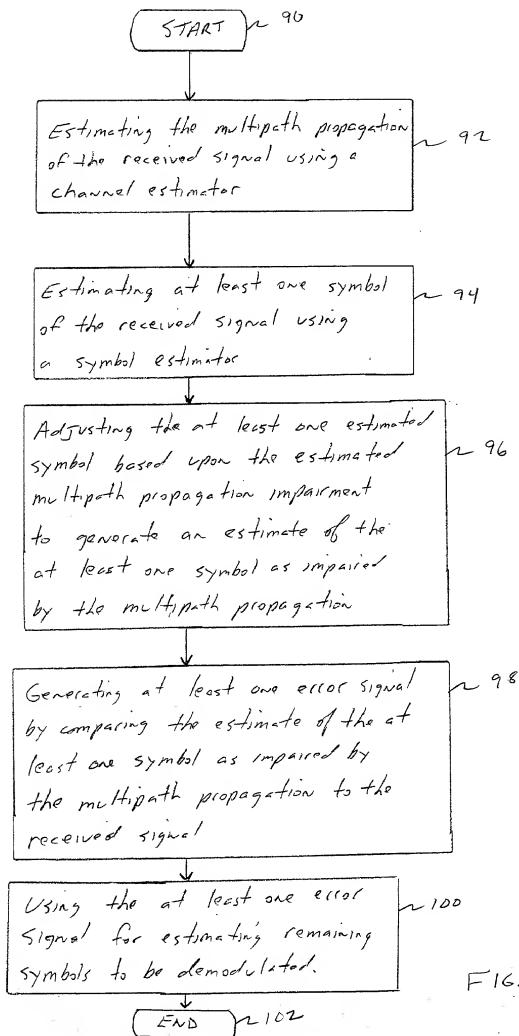 START 90
Estimating the multipath propagation
of the received signal using a
channel estimator
92
Estimating at least one symbol
of the received signal using
a symbol estimator
94
Adjusting the at least one estimated
symbol based upon the estimated
multipath propagation impairment
to generate an estimate of the
at least one symbol as impaired
by the multipath propagation
96
Generating at least one error signal
by comparing the estimate of the at
least one symbol as impaired by
the multipath propagation to the
received signal
98
Using the at least one error
signal for estimating remaining
symbols to be demodulated.
100
FIG.
END 102